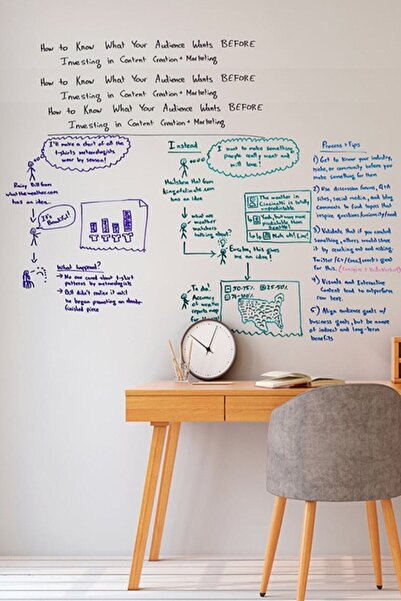 How to Know What Your Audience Wants BEFORE
Investing in Content Creation + Marketing
How to Know What Your Audience Wants BEFORE
Investing in Content Creation + Marketing
How to Know What Your Audience Wants BEFORE
Investing in Content Creation + Marketing
I'll make a chart of all the
t-shirts meteorologists
wear by season!
Rainy Bill from
whattheweather.com
has an idea...
It's Beautiful!
What happened?
→ No one cared about t-shirt
patterns by meteorologists
→ Bill didn't notice it until
he began promoting an already-
finished piece
Instead
I want to make something
people really want and
will love!
Hailstone Hal from
has an idea
what are
weather nuts
talking about?
The weather in
is totally
unpredictable
Eureka, this gives
me an idea!
To do:
Accuracy
of weather
reports map
50-75%
25-50%
75-100%
Process + Tips
1) Get to know your industry,
niche, or community before you
make something for them
2) Use discussion forums, Q&A
sites, social media, and blog
comments to find topics that
inspire questions/curiosity/need
3) Validate that if you created
something, others would share
it by reaching out and asking.
Twitter/G+/Email works great
for this.
4) Visuals and Interactive
Content tend to outperform
raw text.
5) Align audience goals w/
business goals, but be aware
of indirect and long-term
benefits